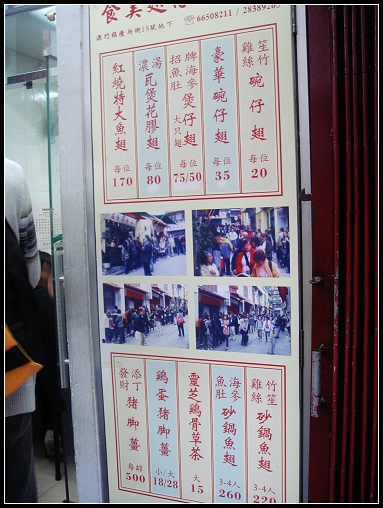 食美翅
66508211 / 28389
澳門福隆新街18號地下
笙竹雞絲碗仔翅
每位
20
豪華碗仔翅
每位
35
牌海參招魚肚煲仔翅
大只翅
每位
75/50
濃湯瓦煲花膠翅
每位
80
紅燒特大魚翅
每位
170
竹笙雞絲砂鍋魚翅
3-4人
220
海參魚肚砂鍋魚翅
3-4人
260
靈芝鷄骨草茶
大
15
鷄蛋猪脚薑
小/大
18/28
添丁發財猪脚薑
500